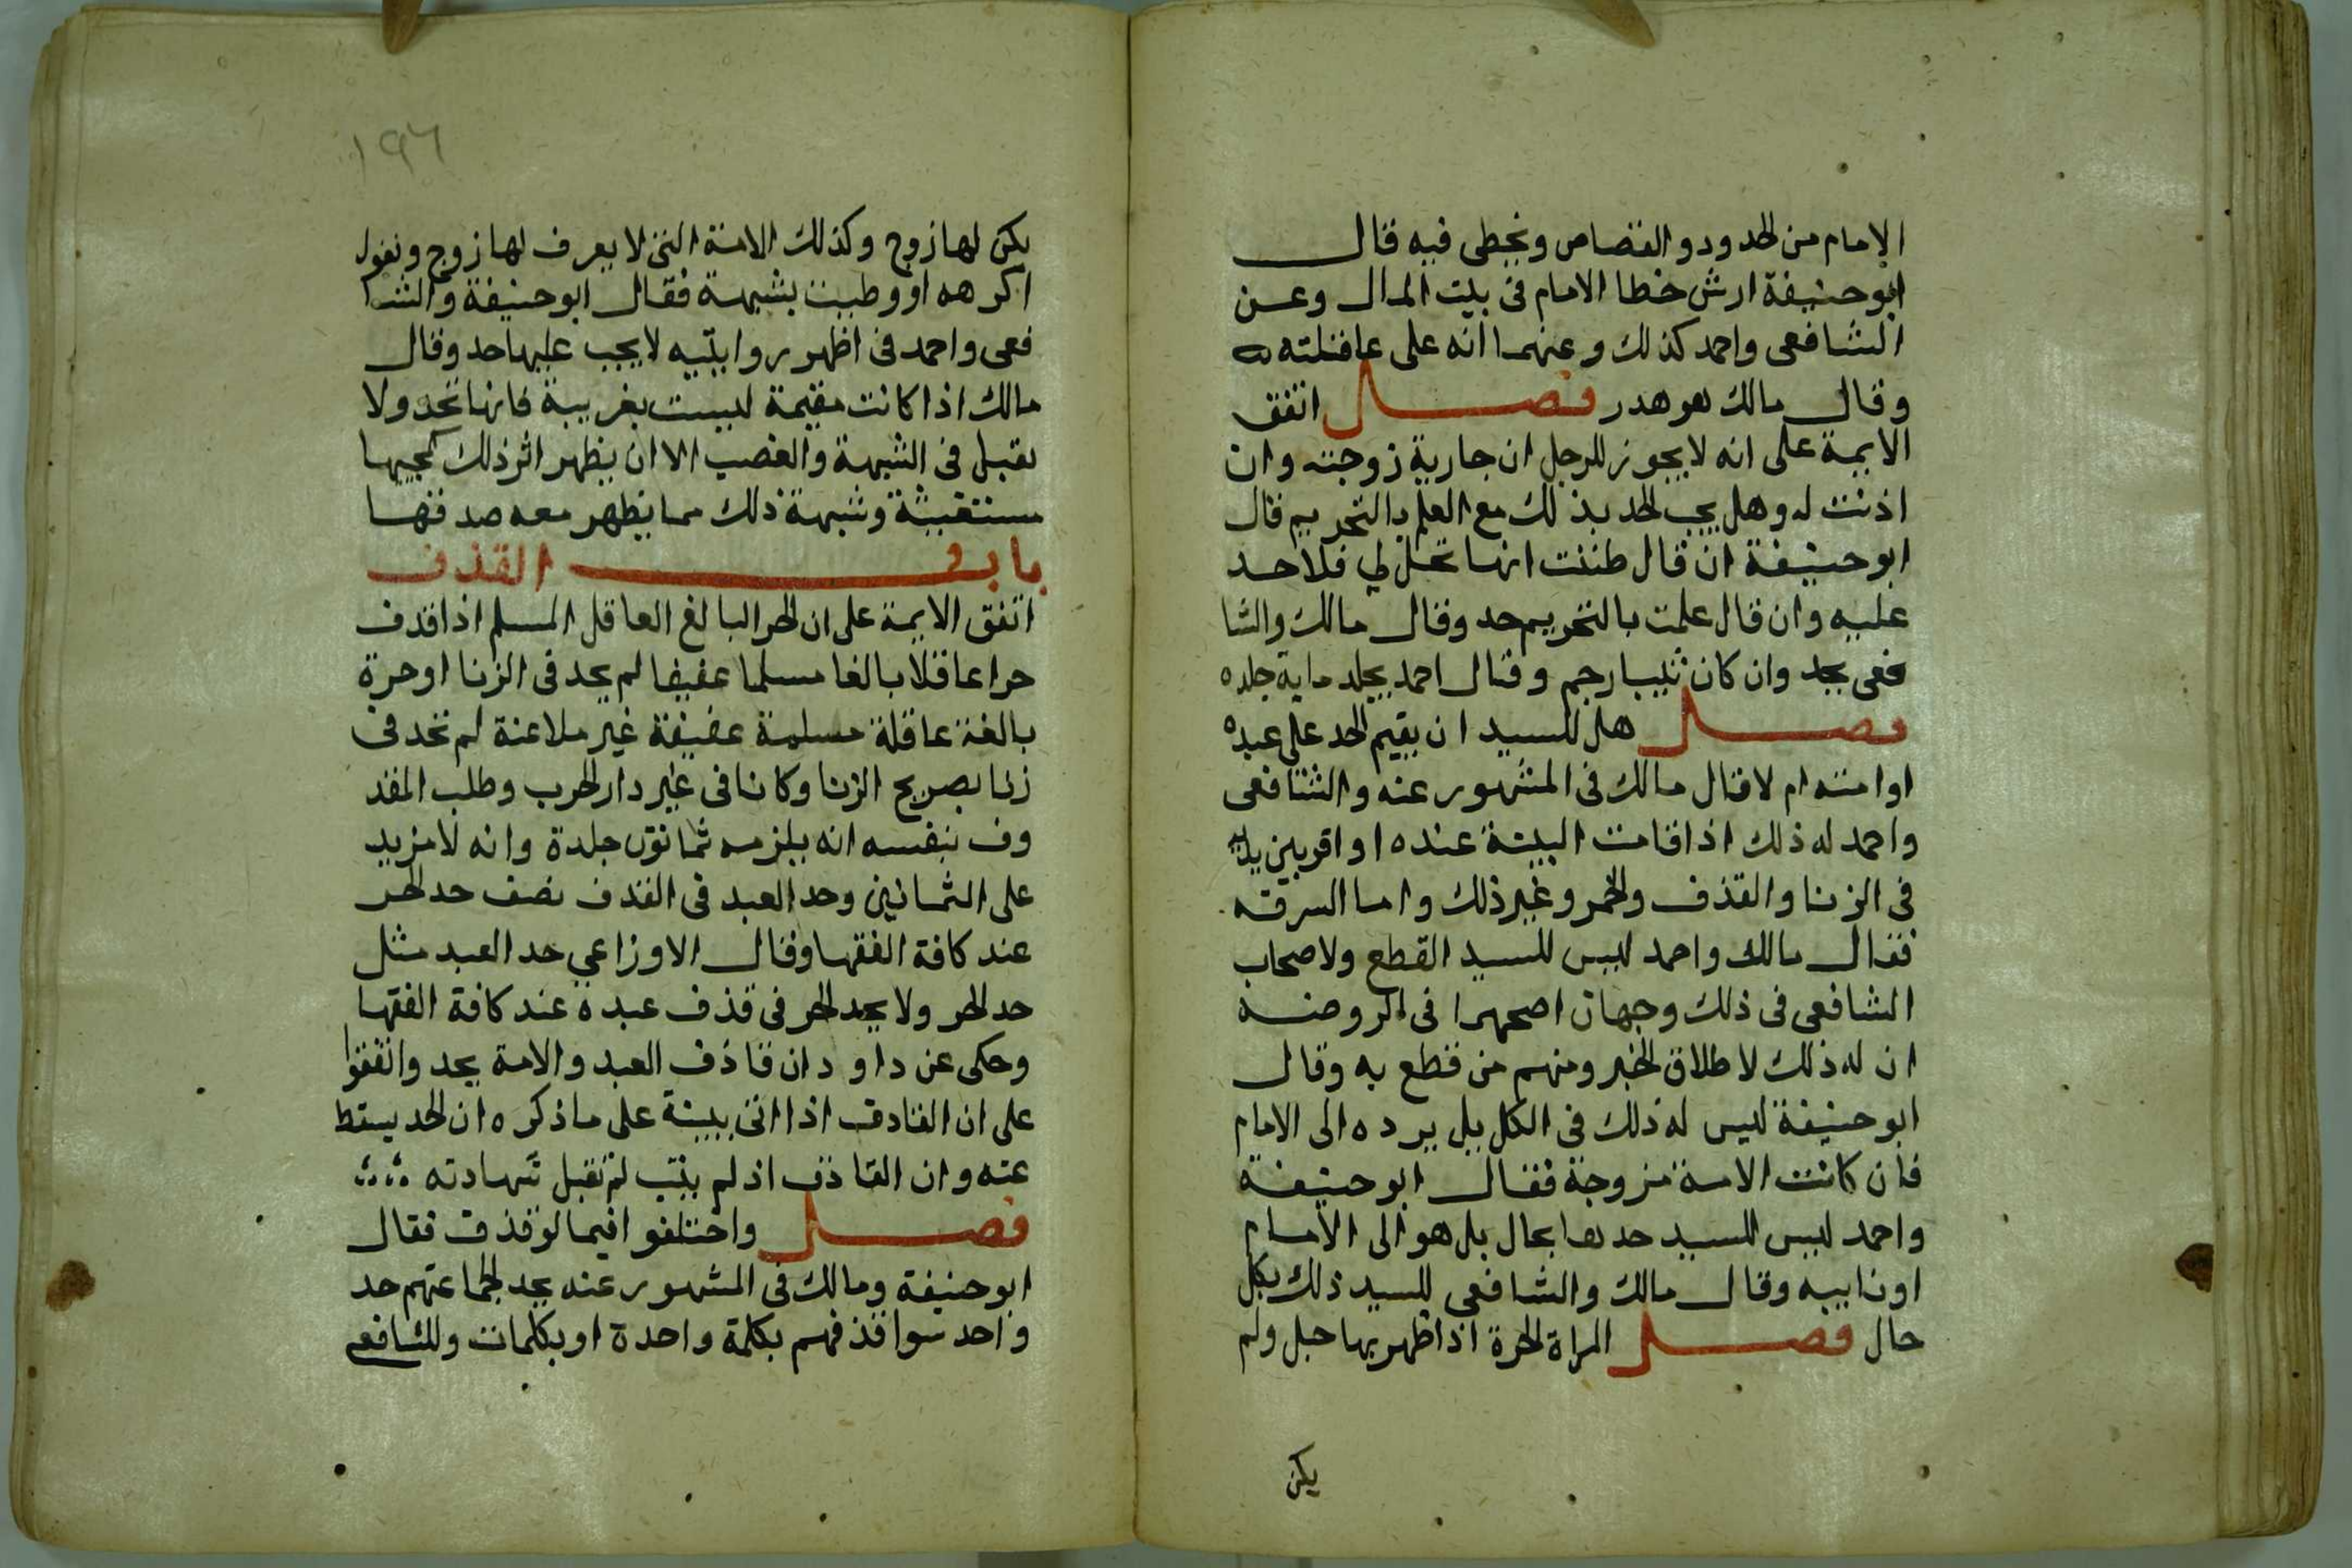 الامام من الحدود والقصاص ويخطى فيه قال
ابوحنيفة ارش خطا الامام فى بيت المال وعن
الشافعى واحمد كذلك وعنهما انه على عاقلته
وقال مالك هو هدر فصل اتفق
الايمة على انه لا يجوز للرجل ان جارية زوجته وان
اذنت له وهل يجب الحد بذلك مع العلم بالتحريم قال
ابوحنيفة ان قال ظننت انها تحل لي فلا حد
عليه وان قال علمت بالتحريم حد وقال مالك والشا
فعى يحد وان كان ثيبا رجم وقال احمد يجلد ماية جلده
فصل هل للسيد ان يقيم الحد على عبده
او امته ام لا قال مالك فى المشهور عنه والشافعى
واحمد له ذلك اذا قامت البينة عنده او اقر بين يديه
فى الزنا والقذف والخمر وغير ذلك واما السرقه
فقال مالك واحمد ليس للسيد القطع ولاصحاب
الشافعى فى ذلك وجهان اصحهما فى الروضه
ان له ذلك لاطلاق الخبر ومنهم من قطع به وقال
ابوحنيفة ليس له ذلك فى الكل بل يرده الى الامام
فان كانت الامة مزوجة فقال ابوحنيفة
واحمد ليس للسيد حدها بحال بل هو الى الامام
او نايبه وقال مالك والشافعى للسيد ذلك بكل
حال فصل المراة الحرة اذا ظهر بها حبل ولم
يكن
١٩٦
يكن لها زوج وكذلك الامة التى لا يعرف لها زوج وتقول
اكرهه او وطيت بشبهة فقال ابوحنيفة والشا
فعى واحمد فى اظهر روايتيه لا يجب عليها حد وقال
مالك اذا كانت مقيمة ليست بغريبة فانها تحد ولا
يقبل فى الشبهة والغصب الا ان يظهر اثر ذلك كمجيها
مستغيثة وشبهة ذلك مما يظهر معه صدقها
باب القذف
اتفق الايمة على ان الحر البالغ العاقل المسلم اذا قذف
حرا عاقلا بالغا مسلما عفيفا لم يحد فى الزنا او حرة
بالغة عاقلة مسلمة عفيفة غير ملاعنة لم تحد فى
زنا بصريح الزنا وكانا فى غير دار الحرب وطلب المقذ
وف بنفسه انه يلزمه ثمانون جلدة وانه لا مزيد
على الثمانين وحد العبد فى القذف نصف حد الحر
عند كافة الفقها وقال الاوزاعي حد العبد مثل
حد الحر ولا يحد الحر فى قذف عبده عند كافة الفقها
وحكى عن داود ان قاذف العبد والامة يحد واتفقوا
على ان القاذف اذا اتى ببينة على ما ذكره ان الحد يسقط
عنه وان القاذف اذ لم يتب لم تقبل شهادته
فصل واختلفوا فيما لو قذف فقال
ابوحنيفة ومالك فى المشهور عنه يحد لجماعتهم حد
واحد سوا قذفهم بكلمة واحدة او بكلمات وللشافعى